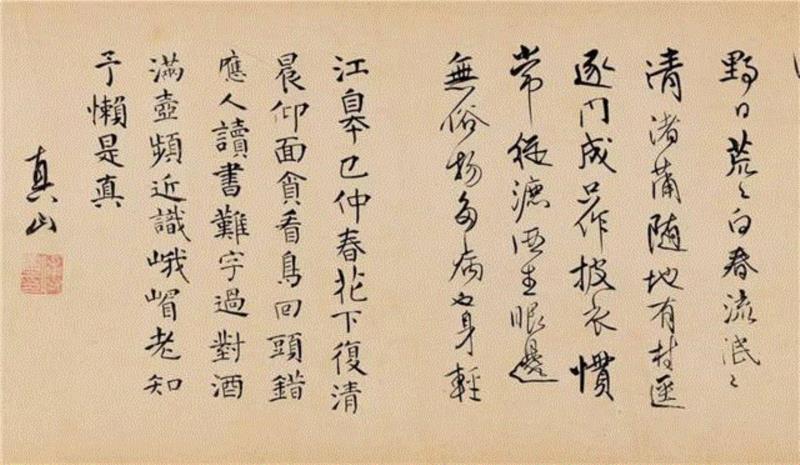 野日荒〻白春流泯〻
清渚蒲隨地有村逕
逐門成只作披衣慣
常從漉酒生眼邊
無俗物多病也身輕
江皋已仲春花下復清
晨仰面貪看鳥回頭錯
應人讀書難字過對酒
滿壺頻近識峨嵋老知
予懶是真
真山